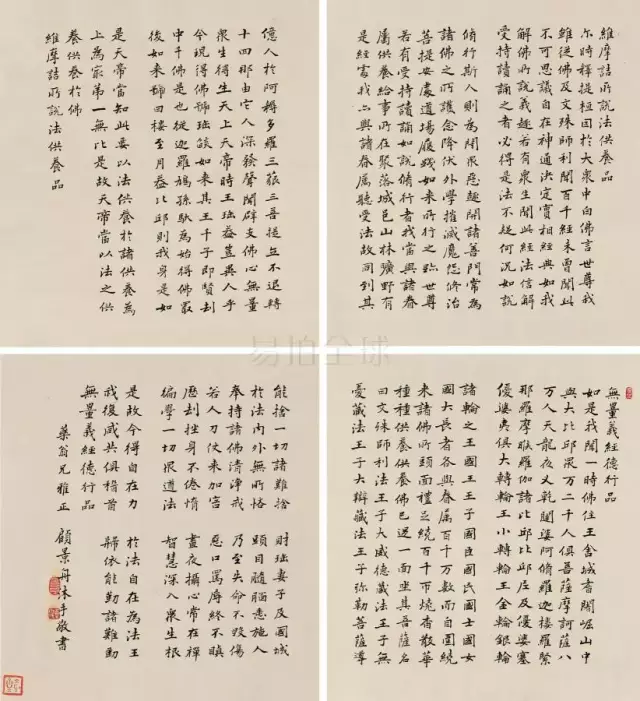 維摩詰所說法供養品
尔時釋提桓因於大眾中白佛言世尊我
雖從佛及文殊師利聞百千經未曾聞此
不可思議自在神通決定實相經典如我
解佛所說義趣若有眾生聞此經法信解
受持讀誦之者必得是法不疑何況如說
脩行斯人則為閉眾惡趣開諸善門常為
諸佛之所護念降伏外學摧滅魔怨修治
菩提安處道場履踐如來所行之跡世尊
若有受持讀誦如說脩行者我當與諸眷
屬供養給事所在聚落城邑山林曠野有
是經處我亦與諸眷屬聽受法故同到其
億人於阿耨多羅三藐三菩提立不退轉
十四那由它人深發聲聞辟支佛心無量
眾生得生天上天帝時王珤葢豈異人乎
今現得佛號珤燄如來其王千子即賢劫
中千佛是也從迦羅鳩孫馱為始得佛最
後如來號曰樓至月葢比邱則我身是如
是天帝當知此要以法供養於諸供養為
上為最第一無比是故天帝當以法之供
養供養於佛
維摩詰所說法供養品
無量義經德行品
如是我聞一時佛住王舍城耆闍崛山中
與大比邱眾万二千人俱菩薩摩訶薩八
万人天龍夜叉乾闥婆阿脩羅迦樓羅緊
那羅摩睺羅伽諸比邱比邱尼及優婆塞
優婆夷俱大轉輪王小轉輪王金輪銀輪
諸輪之王國王王子國臣國民國士國女
國大長者各與眷屬百千万數而自圍繞
來詣佛所頭面禮足繞百千帀燒香散華
種種供養供養佛已退一面坐其菩薩名
曰文殊師利法王子大威德藏法王子無
憂藏法王子大辯藏法王子弥勒菩薩導
能捨一切諸難捨 財珤妻子及國城
於法內外無所恡 頭目髓腦悉施人
奉持諸佛清淨戒 乃至失命不毀傷
若人刀杖來加害 惡口罵辱終不瞋
歷劫挫身不倦惰 晝夜攝心常在禪
徧學一切眾道法 智慧深入眾生根
是故今得自在力 於法自在為法王
我復咸共俱稽首 歸依能勤諸難勤
無量義經德行品
藥翁兄雅正
顧景舟沐手敬書
易拍全球